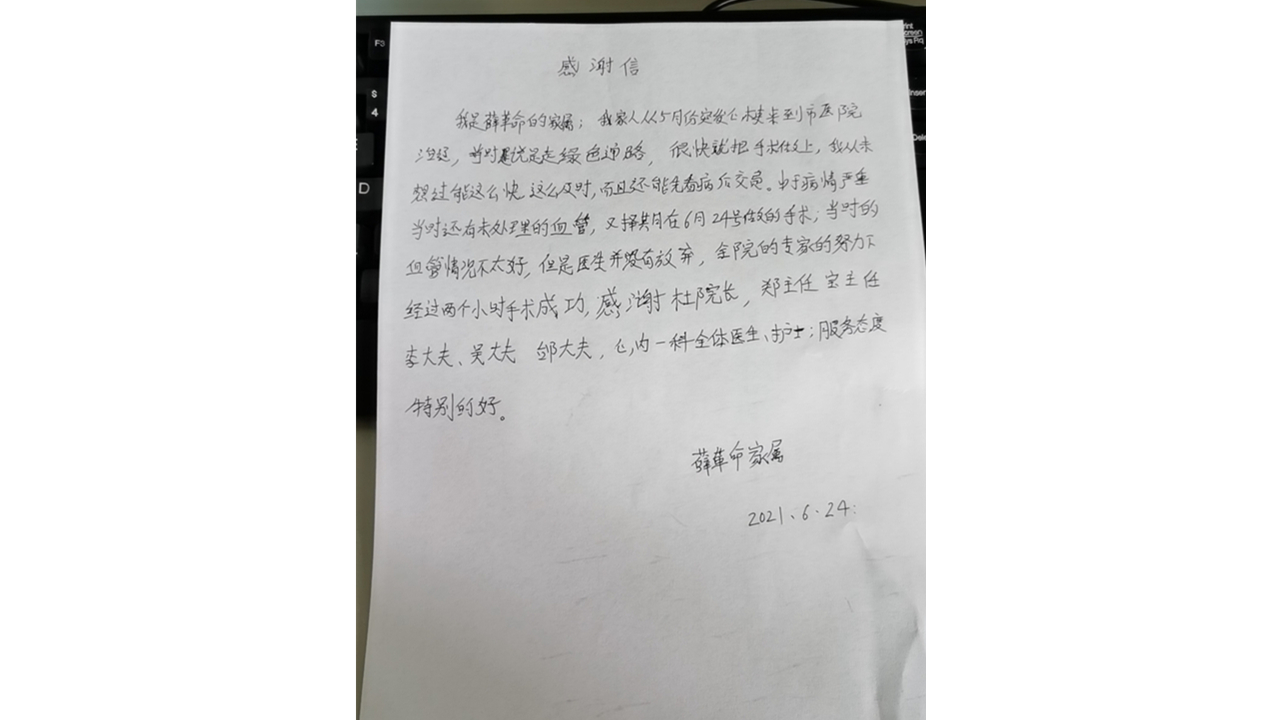 感谢信
我是薛革命的家属；我家人从5月份突发心梗来到市医院
治疗，当时是说是走绿色通路，很快就把手术做上，我从未
想过能这么快这么及时，而且还能先看病后交费。由于病情严重
当时还有未处理的血管，又择期在6月24号做的手术；当时的
血管情况不太好，但是医生并没有放弃，全院的专家的努力下
经过两个小时手术成功，感谢杜院长，郑主任 宝主任
李大夫、吴大夫 邹大夫，心内一科全体医生、护士；服务态度
特别的好。
薛革命家属
2021、6·24：
F3
$
4
D
Print
Screen
Sys Rq
Insert
Del